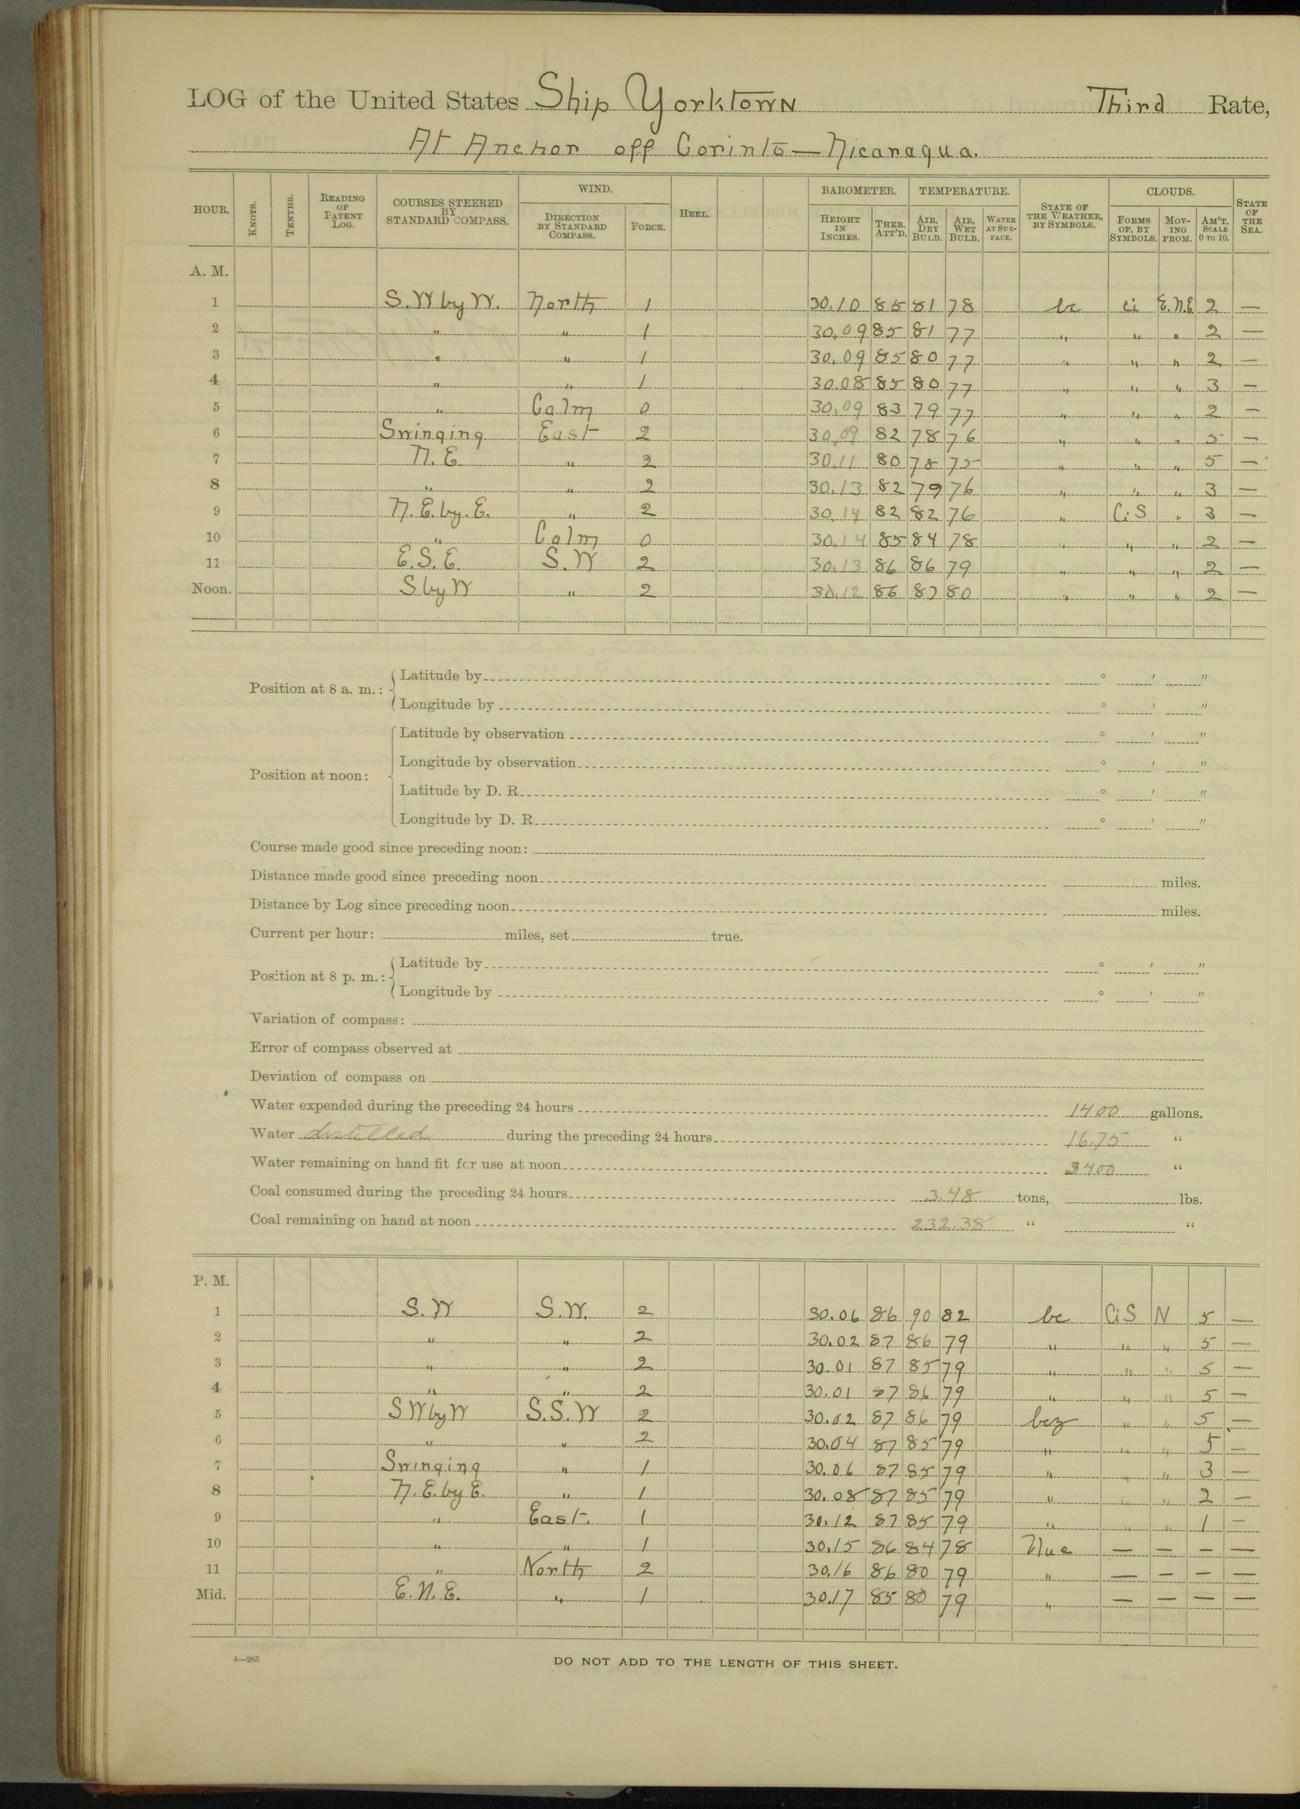 LOG of the United States Ship Yorktown Third Rate,
At Anchor off Corinto — Nicaragua.
HOUR. KNOTS. TENTHS. READING OF PATENT LOG. COURSES STEERED BY STANDARD COMPASS. WIND. DIRECTION BY STANDARD COMPASS. FORCE. HEEL. BAROMETER. HEIGHT IN INCHES. THER. ATT'D. TEMPERATURE. AIR, DRY BULB. AIR, WET BULB. WATER AT SURFACE. STATE OF THE WEATHER, BY SYMBOLS. CLOUDS. FORMS OF, BY SYMBOLS. MOVING FROM. AM'T. SCALE 0 TO 10. STATE OF THE SEA.
A. M.
1 S.W by W. North 1 30.10 85 81 78 bc ci E.N.E 2 —
2 " " 1 30.09 85 81 77 " " " 2 —
3 " " 1 30.09 85 80 77 " " " 2 —
4 " " 1 30.08 85 80 77 " " " 3 —
5 " Calm 0 30.09 83 79 77 " " " 2 —
6 Swinging East 2 30.09 82 78 76 " " " 5 —
7 N.E. " 2 30.11 80 78 75 " " " 5 —
8 " " 2 30.13 82 79 76 " " " 3 —
9 N.E. by. E. " 2 30.14 82 82 76 " CiS " 3 —
10 " Calm 0 30.14 85 84 78 " " " 2 —
11 E.S.E. S.W 2 30.13 86 86 79 " " " 2 —
Noon. S by W " 2 30.12 86 87 80 " " " 2 —
Position at 8 a. m.: Latitude by ° ′ ″
Longitude by ° ′ ″
Position at noon: Latitude by observation ° ′ ″
Longitude by observation ° ′ ″
Latitude by D. R. ° ′ ″
Longitude by D. R. ° ′ ″
Course made good since preceding noon:
Distance made good since preceding noon miles.
Distance by Log since preceding noon miles.
Current per hour: miles, set true.
Position at 8 p. m.: Latitude by ° ′ ″
Longitude by ° ′ ″
Variation of compass:
Error of compass observed at
Deviation of compass on
Water expended during the preceding 24 hours 1400 gallons.
Water distilled during the preceding 24 hours 1675 "
Water remaining on hand fit for use at noon 3400 "
Coal consumed during the preceding 24 hours 3.48 tons, lbs.
Coal remaining on hand at noon 232.38 " "
P. M.
1 S.W S.W. 2 30.06 86 90 82 bc CiS N 5 —
2 " " 2 30.02 87 86 79 " " " 5 —
3 " " 2 30.01 87 85 79 " " " 5 —
4 " " 2 30.01 87 86 79 " " " 5 —
5 S W by W S.S.W 2 30.02 87 86 79 bcz " " 5 —
6 " " 2 30.04 87 85 79 " " " 5 —
7 Swinging " 1 30.06 87 85 79 " " " 3 —
8 N.E. by E. " 1 30.08 87 85 79 " " " 2 —
9 " East. 1 30.12 87 85 79 " " " 1 —
10 " " 1 30.15 86 84 78 blue — — — —
11 " North 2 30.16 86 80 79 " — — — —
Mid. E.N.E. " 1 30.17 85 80 79 " — — — —
4—265
DO NOT ADD TO THE LENGTH OF THIS SHEET.